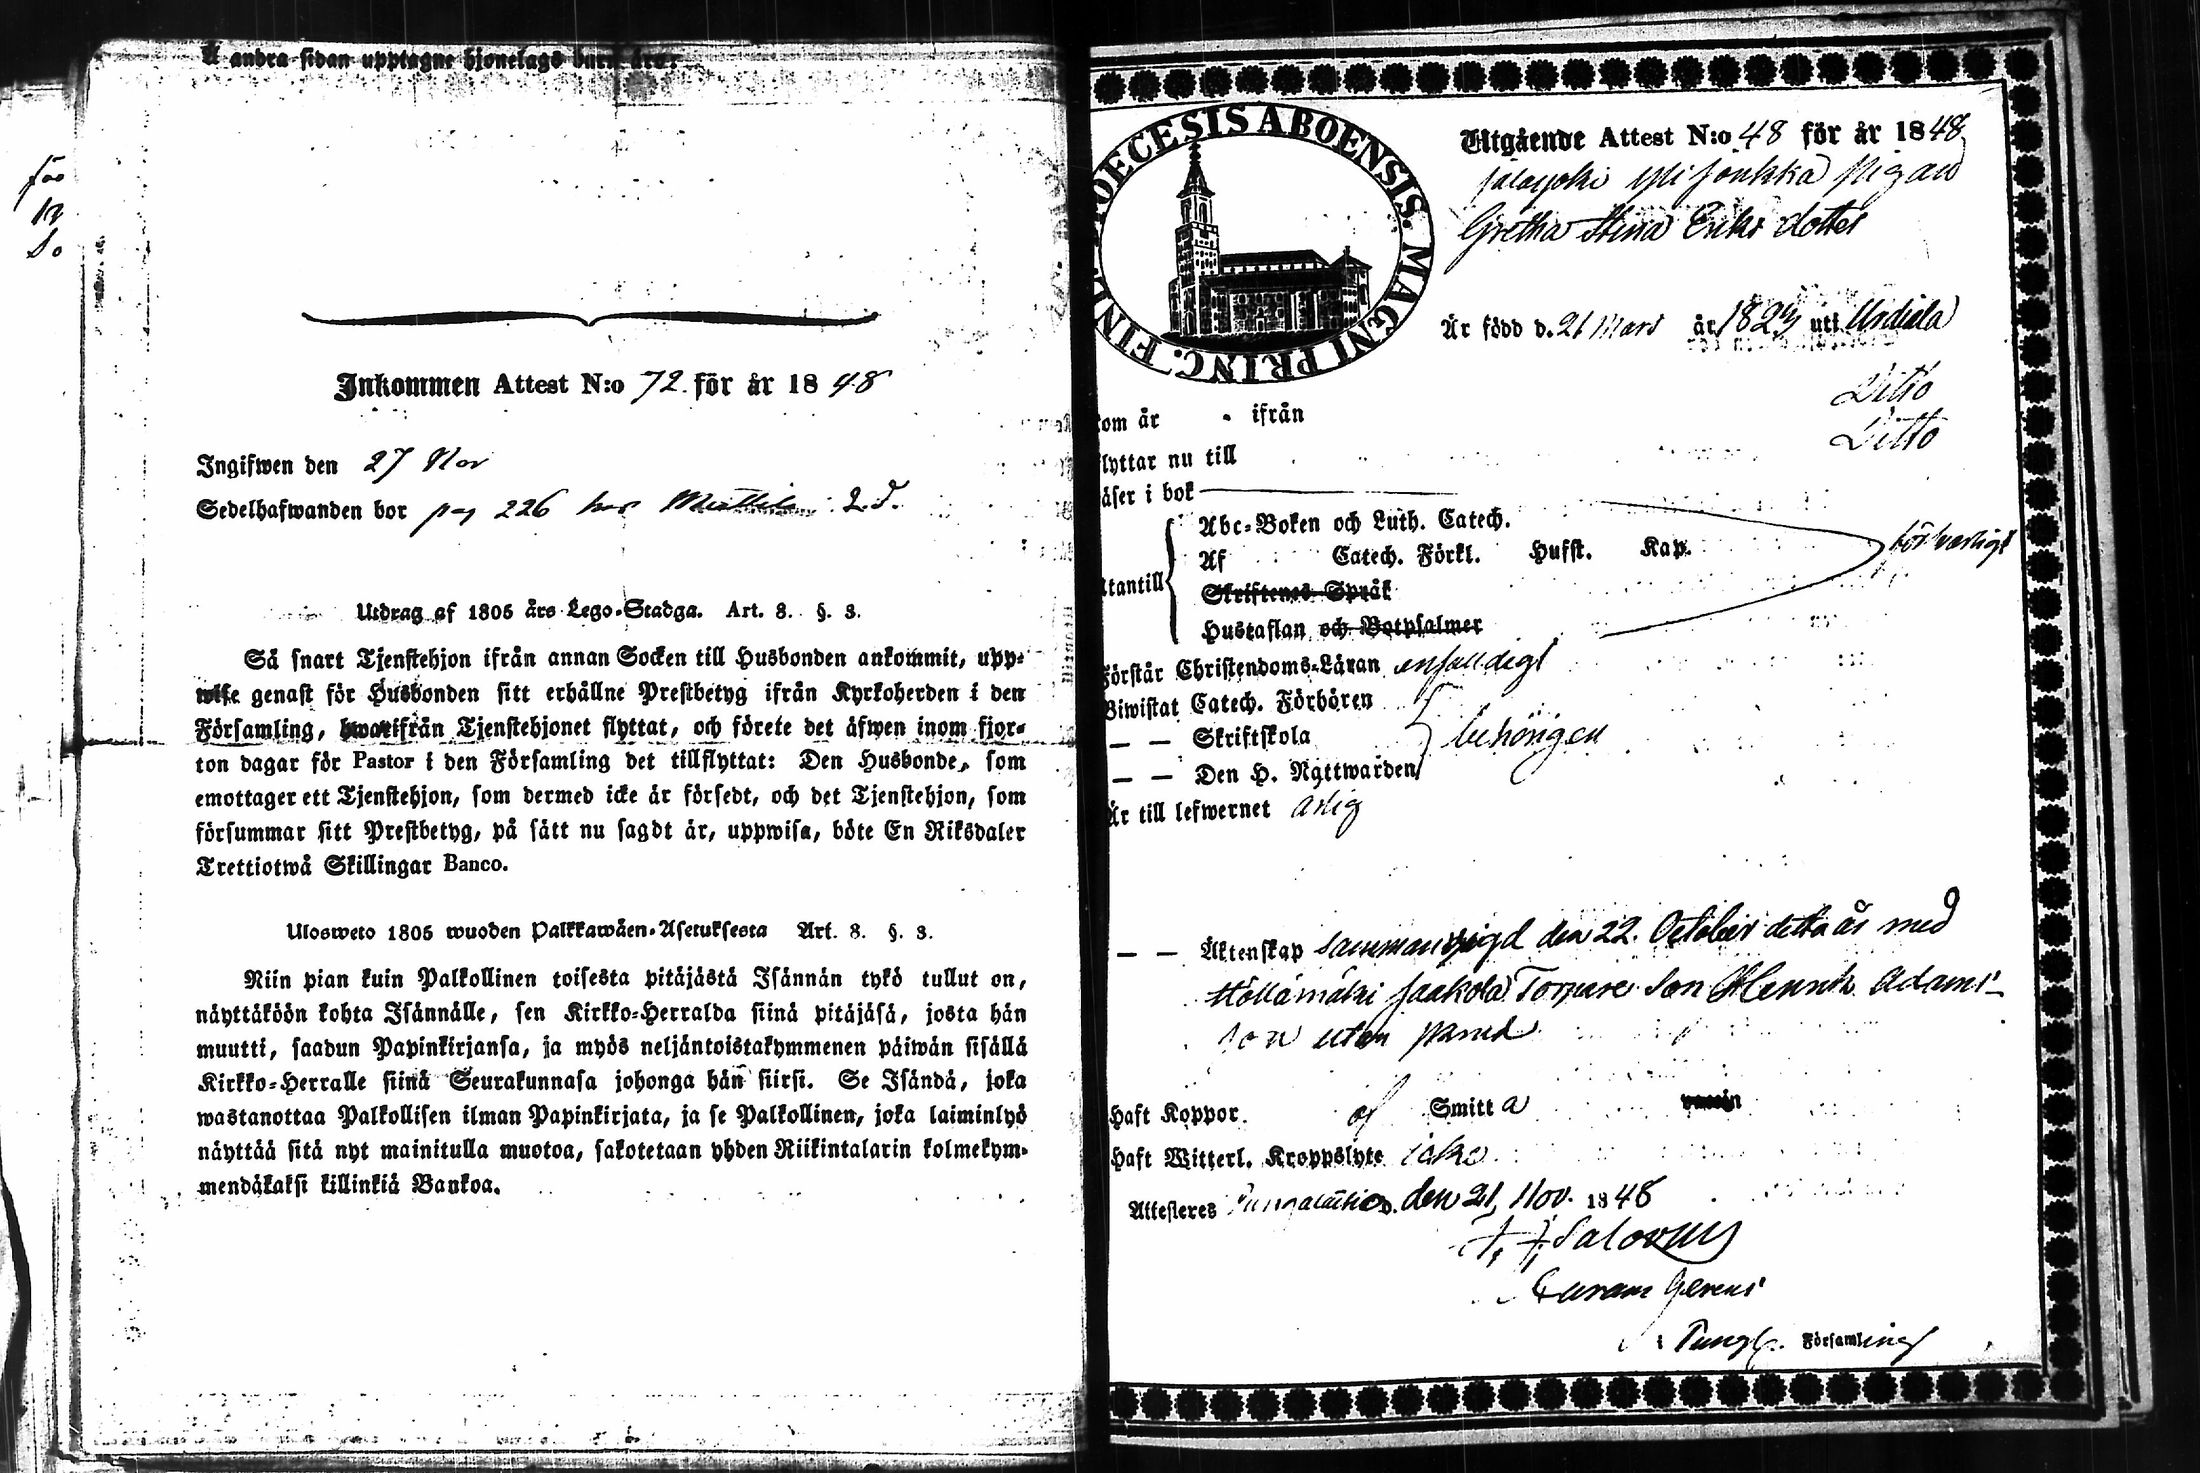 Å andra sidan upptagne hjonelags barn äro:
Inkommen Attest N:o 72 för år 1848
Ingifwen den 27 Nov
Sedelhafwanden bor pag 226 hos
Utdrag af 1805 års Lego-Stadga. Art. 8. §. 3.
Så snart Tjenstehjon ifrån annan Socken till Husbonden ankommit, upp-
wise genast för Husbonden sitt erhållne Prestbetyg ifrån Kyrkoherden i den
Församling, hwarifrån Tjenstehjonet flyttat, och förete det äfwen inom fjor-
ton dagar för Pastor i den Församling det tillflyttat: Den Husbonde, som
emottager ett Tjenstehjon, som dermed icke är försedt, och det Tjenstehjon, som
försummar sitt Prestbetyg, på sätt nu sagdt är, uppwisa, böte En Riksdaler
Trettiotwå Skillingar Banco.
Ulosweto 1805 wuoden Palkkawäen-Asetuksesta Art. 8. §. 3.
Niin pian kuin Palkollinen toisesta pitäjästä Isännän tykö tullut on,
näyttäköön kohta Isännälle, sen Kirkko-Herralda siinä pitäjäsä, josta hän
muutti, saadun Papinkirjansa, ja myös neljäntoistakymmenen päiwän sisällä
Kirkko-Herralle siinä Seurakunnasa johonga hän siirsi. Se Isändä, joka
wastanottaa Palkollisen ilman Papinkirjata, ja se Palkollinen, joka laiminlyö
näyttää sitä nyt mainitulla muotoa, sakotetaan yhden Riikintalarin kolmekym-
mendäkaksi killinkiä Bankoa.
DIOECESIS ABOENSIS. MAGNI PRINC. FINL
Utgående Attest N:o 48 för år 1848
Pigan
Gretha Stina Eriks dotter
Är född d. 21 Mars år 182 uti Urdiala
kom år - ifrån Ditto
flyttar nu till Ditto
läser i bok
Utantill
Abc-Boken och Luth. Catech.
Af Catech. Förkl. Hufst. Kap.
Skriftenes Språk
Hustaflan och Botpsalmer
försvarligt
Förstår Christendoms-Läran enfalldigt
Biwistat Catech. Förhören
— — Skriftskola behörigen
— — Den H. Nattwarden
Är till lefwernet ärlig
— — Äktenskap sammanvigd den 22. October detta år med
Jaakola Torpare Son Henrik Adams-
son utan
Haft Koppor. af Smitta
Haft Witterl. Kroppslyte icke
Attesteres den 21, Nov. 1848
Salovius
Curam gerens
i Pungl. Församling